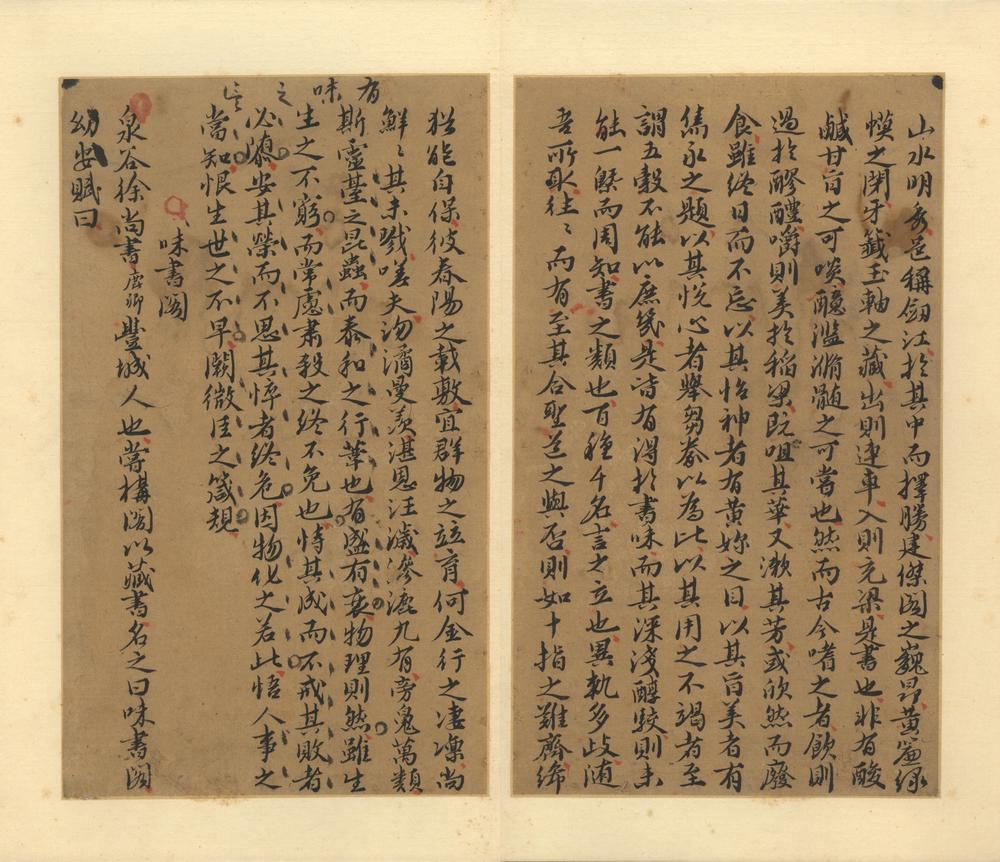 山水明秀邑稱劒江於其中而擇勝建傑閣之巍昂黃簾綠
幙之閉牙籤玉軸之藏出則連車入則充梁是書也非有酸
鹹甘旨之可啖醯濫瀡髓之可嘗也然而古今嗜之者飲則
過於醪醴嚼則美於稻粱既咀其華又漱其芳或欣然而廢
食雖終日而不忘以其怡神者有黃妳之目以其旨美者有
雋永之題以其悅心者舉芻豢以為比以其用之不竭者至
謂五穀不能以庶幾是皆有得於書味而其深淺醇駁則未
能一槩而周知書之類也百種千名言之立也異軌多歧随
吾所取往〻而有至其合聖道之與否則如十指之難齊締
有味之言
猶能自保彼春陽之載敷宜群物之竝育何金行之凄凜尚
鮮〻其未戮嗟夫沕潏曼羡湛恩汪濊滲漉九有旁萬類
斯靈之昆蟲而泰和之行葦也有盛有衰物理則然雖生
生之不窮而常慮肅殺之終不免也恃其成而不戒其敗者
必隳安其榮而不思其悴者終危因物化之若此悟人事之
當知恨生世之不早闕微臣之箴規
味書閣
泉谷徐尚書鹿卿豐城人也嘗構閣以藏書名之曰味書閣
幼安賦曰